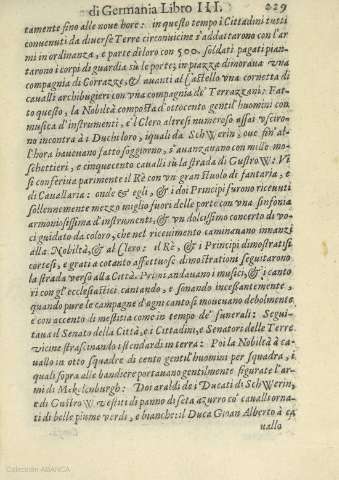 di Germania Libro III. 229
tamente fino alle noue hore: in questo tempo i Cittadini tutti
conuenuti da diuerse Terre circonuicine s'addattarono con l'ar
mi in ordinanza, e parte di loro con 500. soldati pagati pian-
tarono i corpi di guardia sù le porte; in piazza dimoraua vna
compagnia di Corrazze, & auanti al Castello vna cornetta di
caualli archibugieri con vna compagnia di Terrazzani: Fat-
to questo, la Nobiltà composta d'ottocento gentil'huomini con
musica d'instrumenti, e'l Clero altresì numeroso assai vsciro-
no incontra à i Duchi loro, i quali da SchWerin, oue fin'al-
l'hora haueuano fatto soggiorno, s'auanzauano con mille mo-
schettieri, e cinquecento caualli sù la strada di GustroW: Vi
si conferiua parimente il Rè con vn gran stuolo di fantaria, e
di Cauallaria: onde & egli, & i doi Principi furono riceuuti
sollennemente mezzo miglio fuori delle porte con vna sinfonia
armoniosissima d'instrumenti, & vn dolcissimo concerto di vo-
ci guidato da coloro, che nel riceuimento caminauano innanzi
alla Nobiltà, & al Clero: il Rè, & i Principi dimostratisi
cortesi, e grati a cotanto affettuose dimostrationi seguitarono
la strada verso alla Città. Primi andauano i musici, & i canto
ri con gl'ecclesiastici cantando, e sonando incessantemente,
quando pure le campane d'ogni canto si moueuano debolmente
e con accento di mestitia come in tempo de' funerali: Segui-
taua il Senato della Città, e i Cittadini, e Senatori delle Terre
vicine strascinando i stendardi in terra: Poi la Nobiltà à ca-
uallo in otto squadre di cento gentil'huomini per squadra, i
quali sopra alle bandiere portauano gentilmente figurate l'ar-
mi di Mekelenburgh: Doi araldi de i Ducati di SchWerin,
e di GustroW vestiti di panno di seta azurro co' caualli orna-
ti di belle piume verdi, e bianche: il Duca Gioan Alberto à ca
uallo
Colección ABANCA